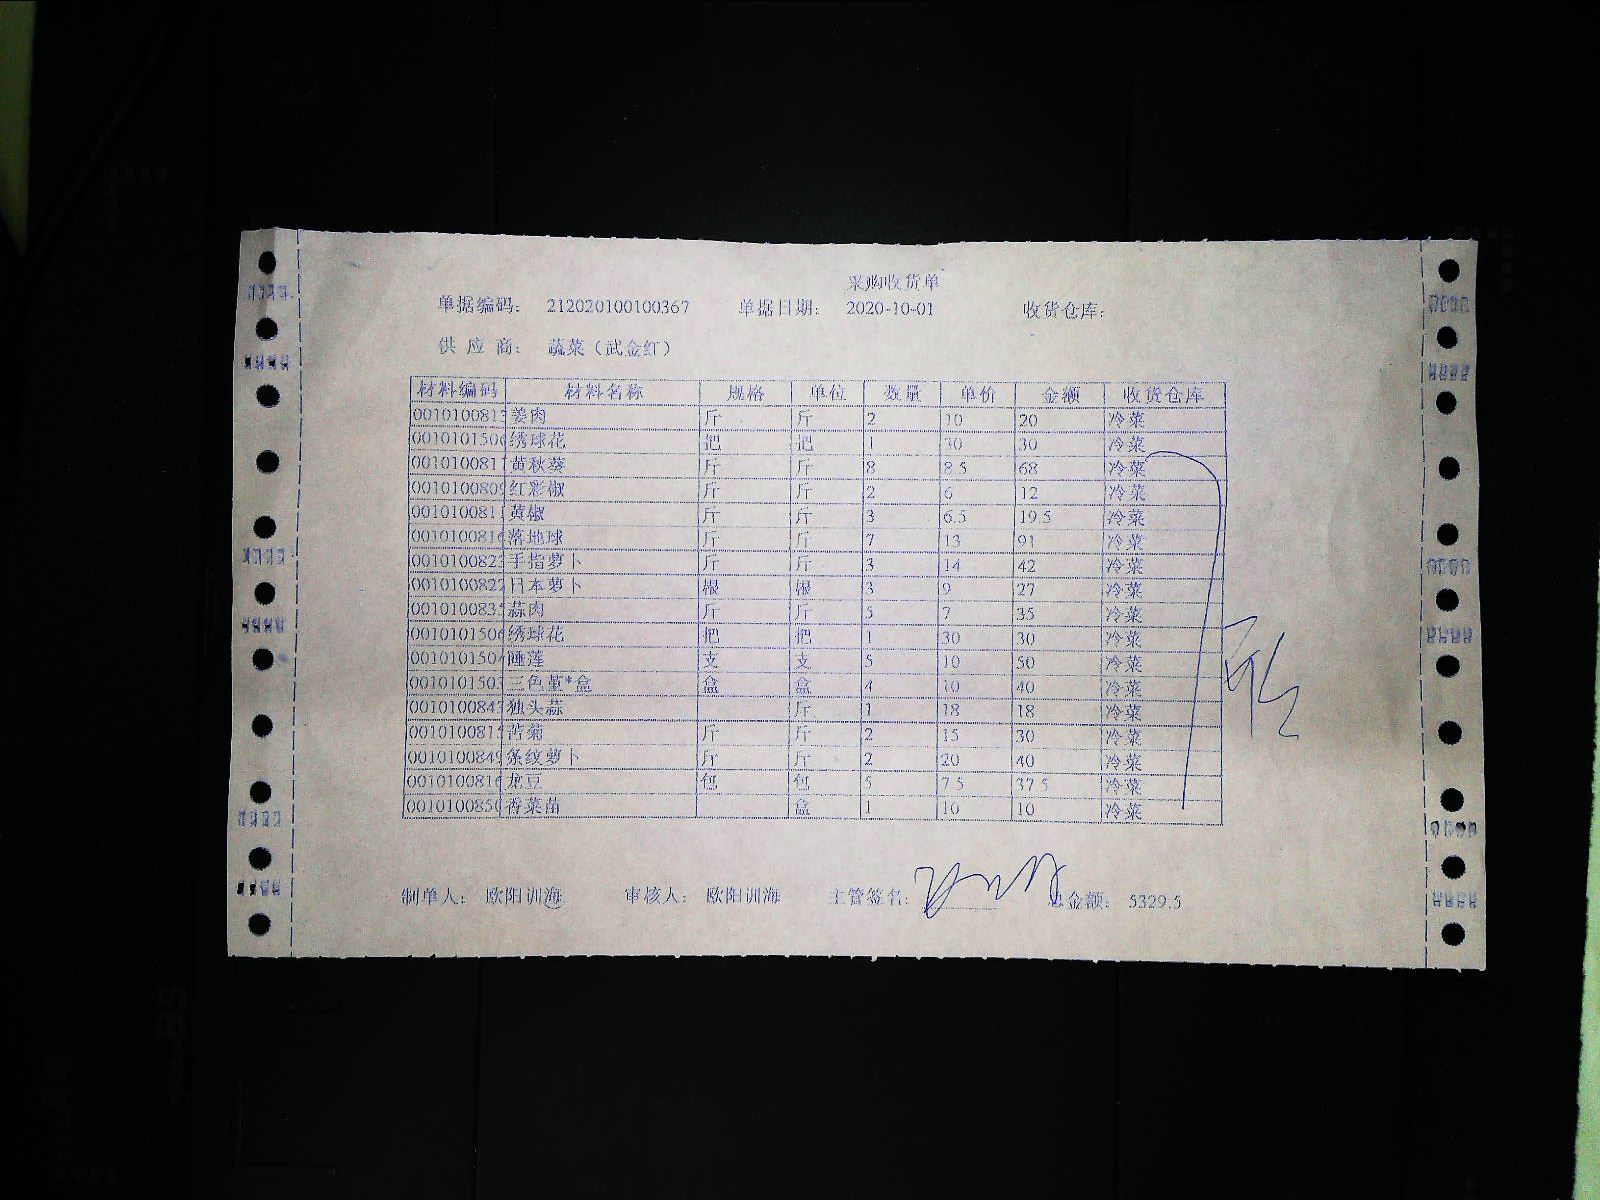 采购收货单
单据编码： 212020100100367 单据日期： 2020-10-01 收货仓库：
供 应 商： 蔬菜（武金红）
材料编码 材料名称 规格 单位 数量 单价 金额 收货仓库
0010100813 姜肉 斤 斤 2 10 20 冷菜
0010101506 绣球花 把 把 1 30 30 冷菜
0010100811 黄秋葵 斤 斤 8 8.5 68 冷菜
0010100809 红彩椒 斤 斤 2 6 12 冷菜
0010100811 黄椒 斤 斤 3 6.5 19.5 冷菜
0010100816 落地球 斤 斤 7 13 91 冷菜
0010100823 手指萝卜 斤 斤 3 14 42 冷菜
0010100822 日本萝卜 根 根 3 9 27 冷菜
0010100835 蒜肉 斤 斤 5 7 35 冷菜
0010101506 绣球花 把 把 1 30 30 冷菜
001010150 睡莲 支 支 5 10 50 冷菜
0010101503 三色堇*盒 盒 盒 4 10 40 冷菜
0010100843 独头蒜 斤 1 18 18 冷菜
0010100815 苦菊 斤 斤 2 15 30 冷菜
0010100849 条纹萝卜 斤 斤 2 20 40 冷菜
0010100816 龙豆 包 包 5 7.5 37.5 冷菜
0010100850 香菜苗 盒 1 10 10 冷菜
制单人： 欧阳训海 审核人： 欧阳训海 主管签名： 总金额： 5329.5